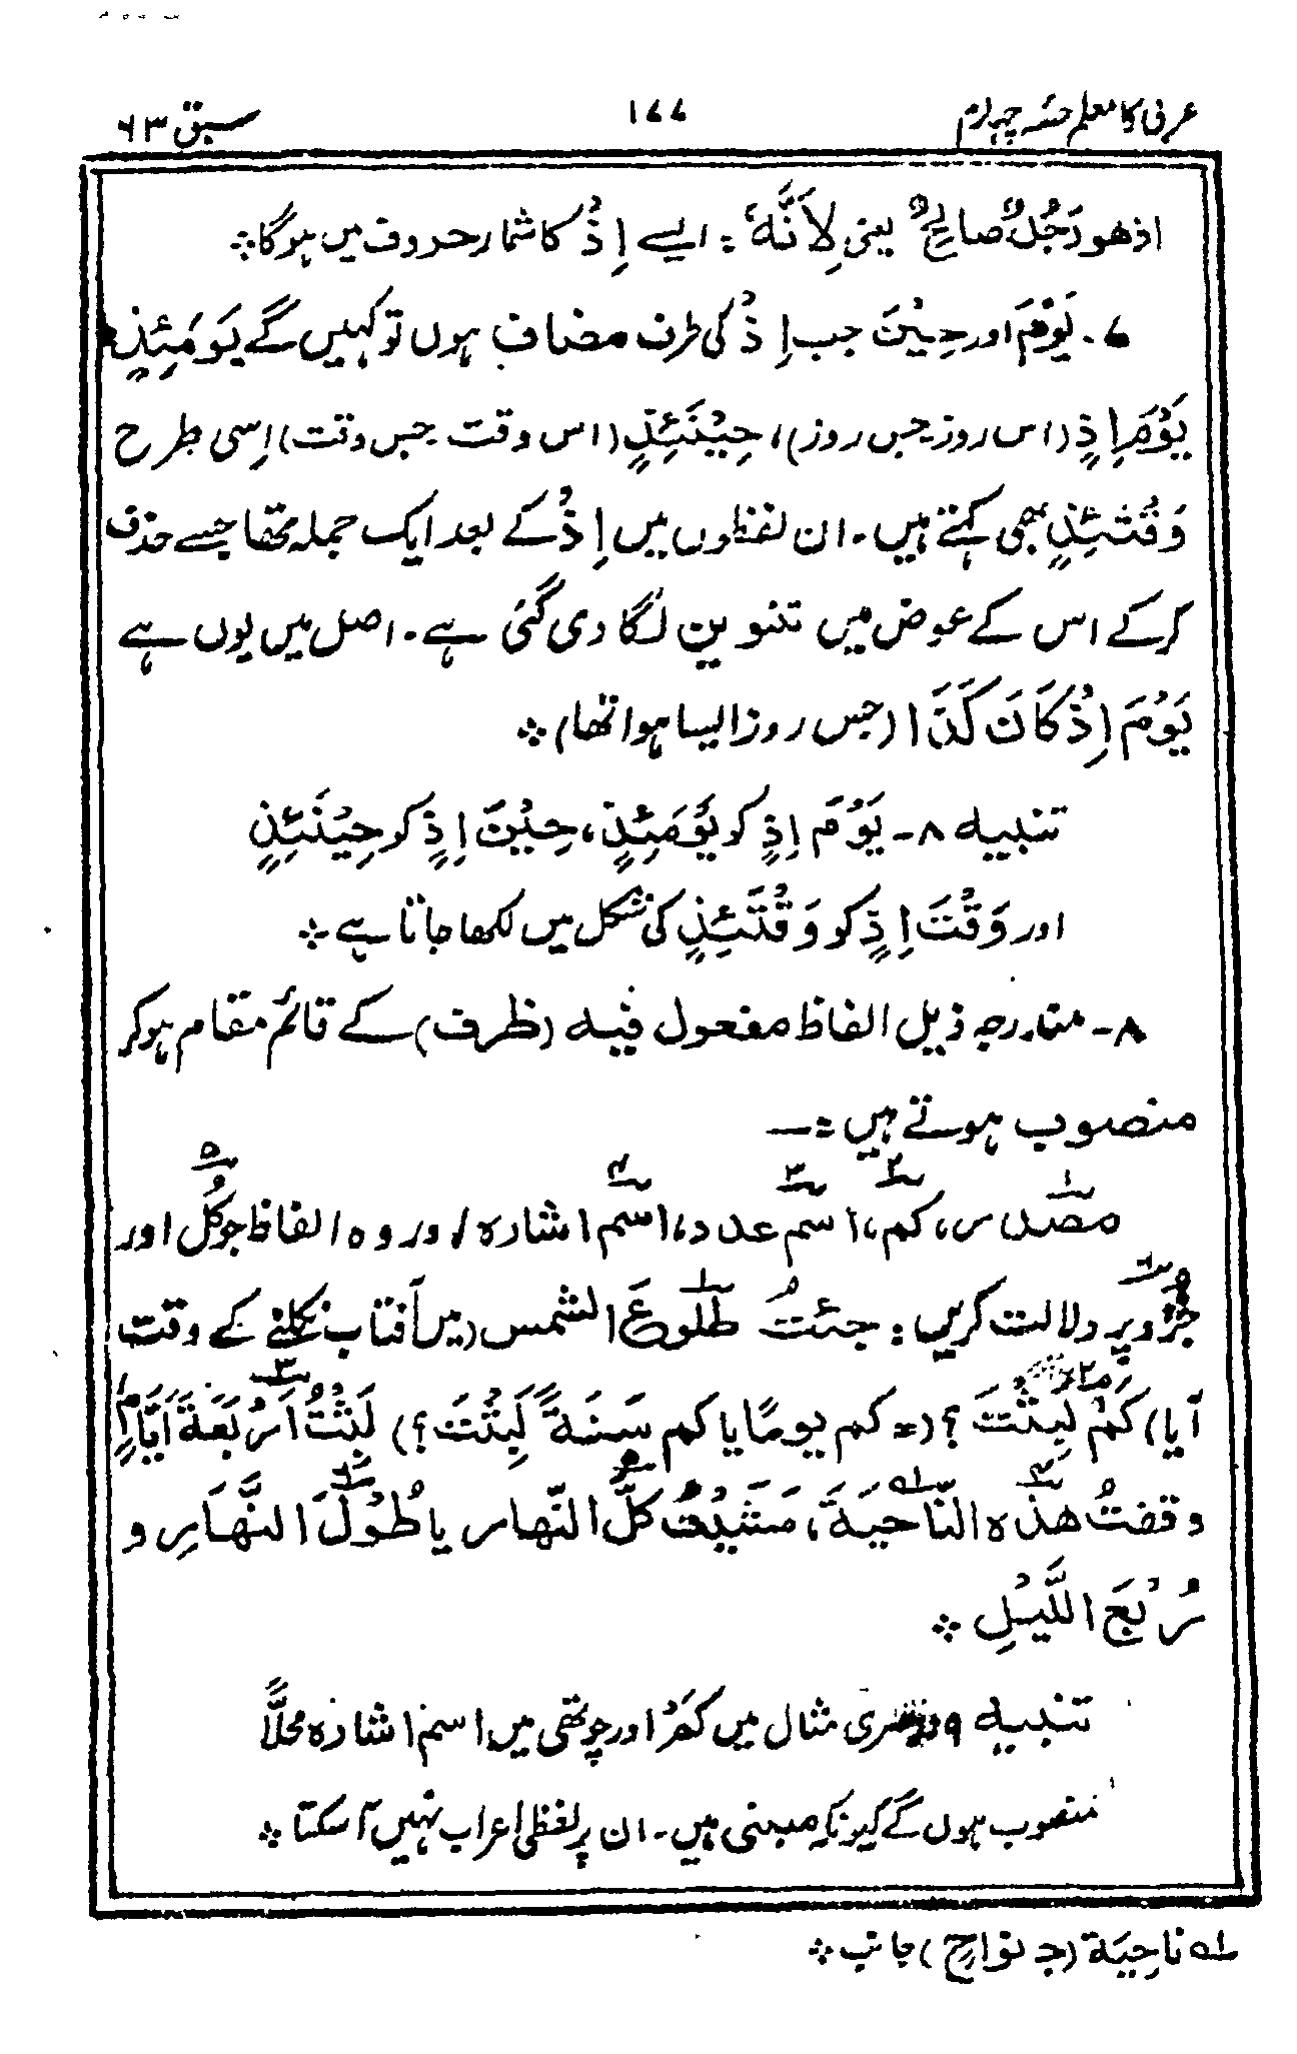 عربی کا معلم حصہ چہارم ۱۷۷ سبق ۶۳
اذ هو رَجُلٌ صالحٌ یعنی لِاَنَّهٗ : ایسے اِذْ کا شمار حروف میں ہوگا ⁘
۷۔ یَوْمَ اور حِیْنَ جب اِذْ کی طرف مضاف ہوں تو کہیں گے یَوْمَئِذٍ،
یَوْمَ اِذٍ (اس روز جس روز)، حِیْنَئِذٍ (اس وقت جس وقت) اِسی طرح
وَقْتَئِذٍ بھی کہتے ہیں۔ ان لفظوں میں اِذْ کے بعد ایک جملہ تھا جسے حذف
کرکے اس کے عوض میں تنوین لگا دی گئی ہے۔ اصل میں یوں ہے
یَوْمَ اِذْ کَانَ کَذَا (جس روز ایسا ہوا تھا) ⁘
تنبیہ ۸۔ یَوْمَ اِذٍ کو یَوْمَئِذٍ، حِیْنَ اِذٍ کو حِیْنَئِذٍ
اور وَقْتَ اِذٍ کو وَقْتَئِذٍ کی شکل میں لکھا جاتا ہے ⁘
۸۔ مندرجہ ذیل الفاظ مفعول فیہ (ظرف) کے قائم مقام ہوکر
منصوب ہوتے ہیں :—
مصدر۱، کم۲، اسم عدد۳، اسم اشارہ۴، اور وہ الفاظ جو کُل۵ اور
جُزْو۶ پر دلالت کریں : جئتُ طُلُوعَ۱ الشمس (میں آفتاب نکلنے کے وقت
آیا) کَمْ۲ لَبِثْتَ ؟ (= کم یومًا یا کم سَنَةً لَبِثْتَ ؟) لَبِثْتُ اَرْبَعَةَ۳ اَیَّامٍ
وقفتُ هذه۴ النَّاحِیَةَ۱ه، مَشَیْتُ کُلَّ۵ النّهار یا طُوْلَ۶ النَّهَارِ و
رُبْعَ اللَّیْلِ ⁘
تنبیہ ۹ دوسری مثال میں کَمْ اور چوتھی میں اسم اشارہ محلاًّ
منصوب ہوں گے کیونکہ مبنی ہیں۔ ان پر لفظی اعراب نہیں آسکتا ⁘
۱ه نَاحِیَة (جـ نواحٍ) جانب ⁘